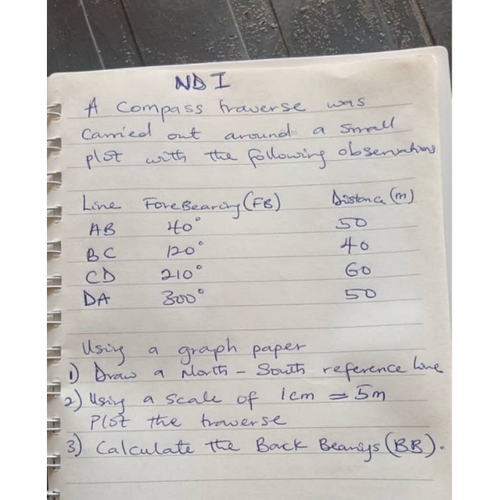 ND I
A Compass traverse was
Carried out around a Small
plot with the following observations
Line Fore Bearing (FB) Distance (m)
AB 40° 50
BC 120° 40
CD 210° 60
DA 300° 50
Using a graph paper
1) Draw a North - South reference line
2) Using a Scale of 1cm = 5m
Plot the traverse
3) Calculate the Back Bearings (BB).